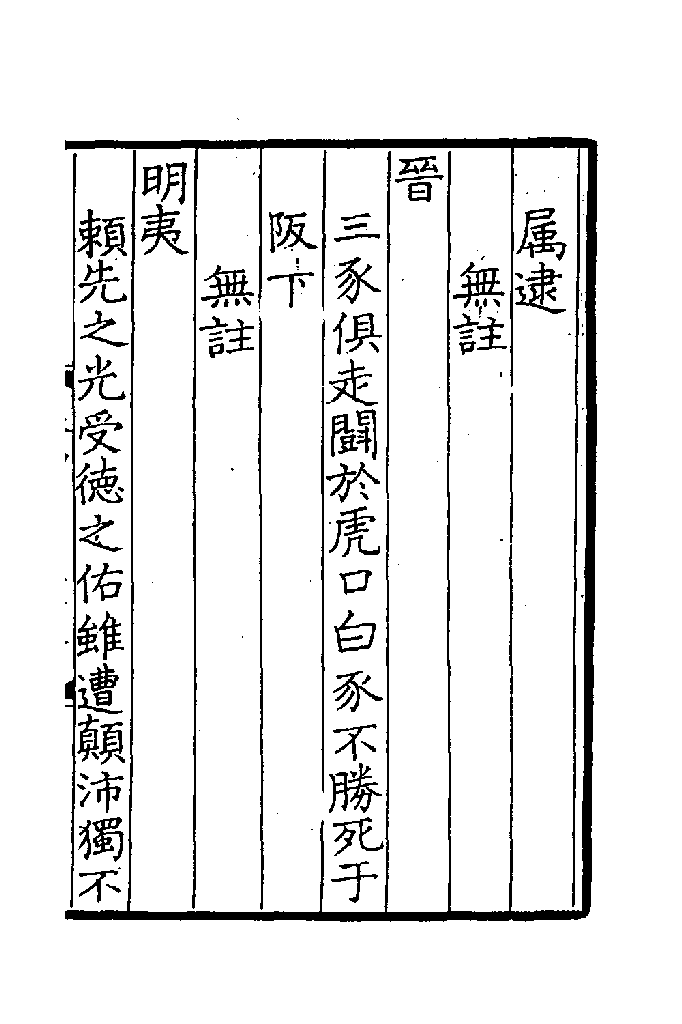 属逮
無註
晉
三豕俱走鬬於虎口白豕不勝死于
阪下
無註
明夷
頼先之光受徳之佑雖遭顛沛獨不